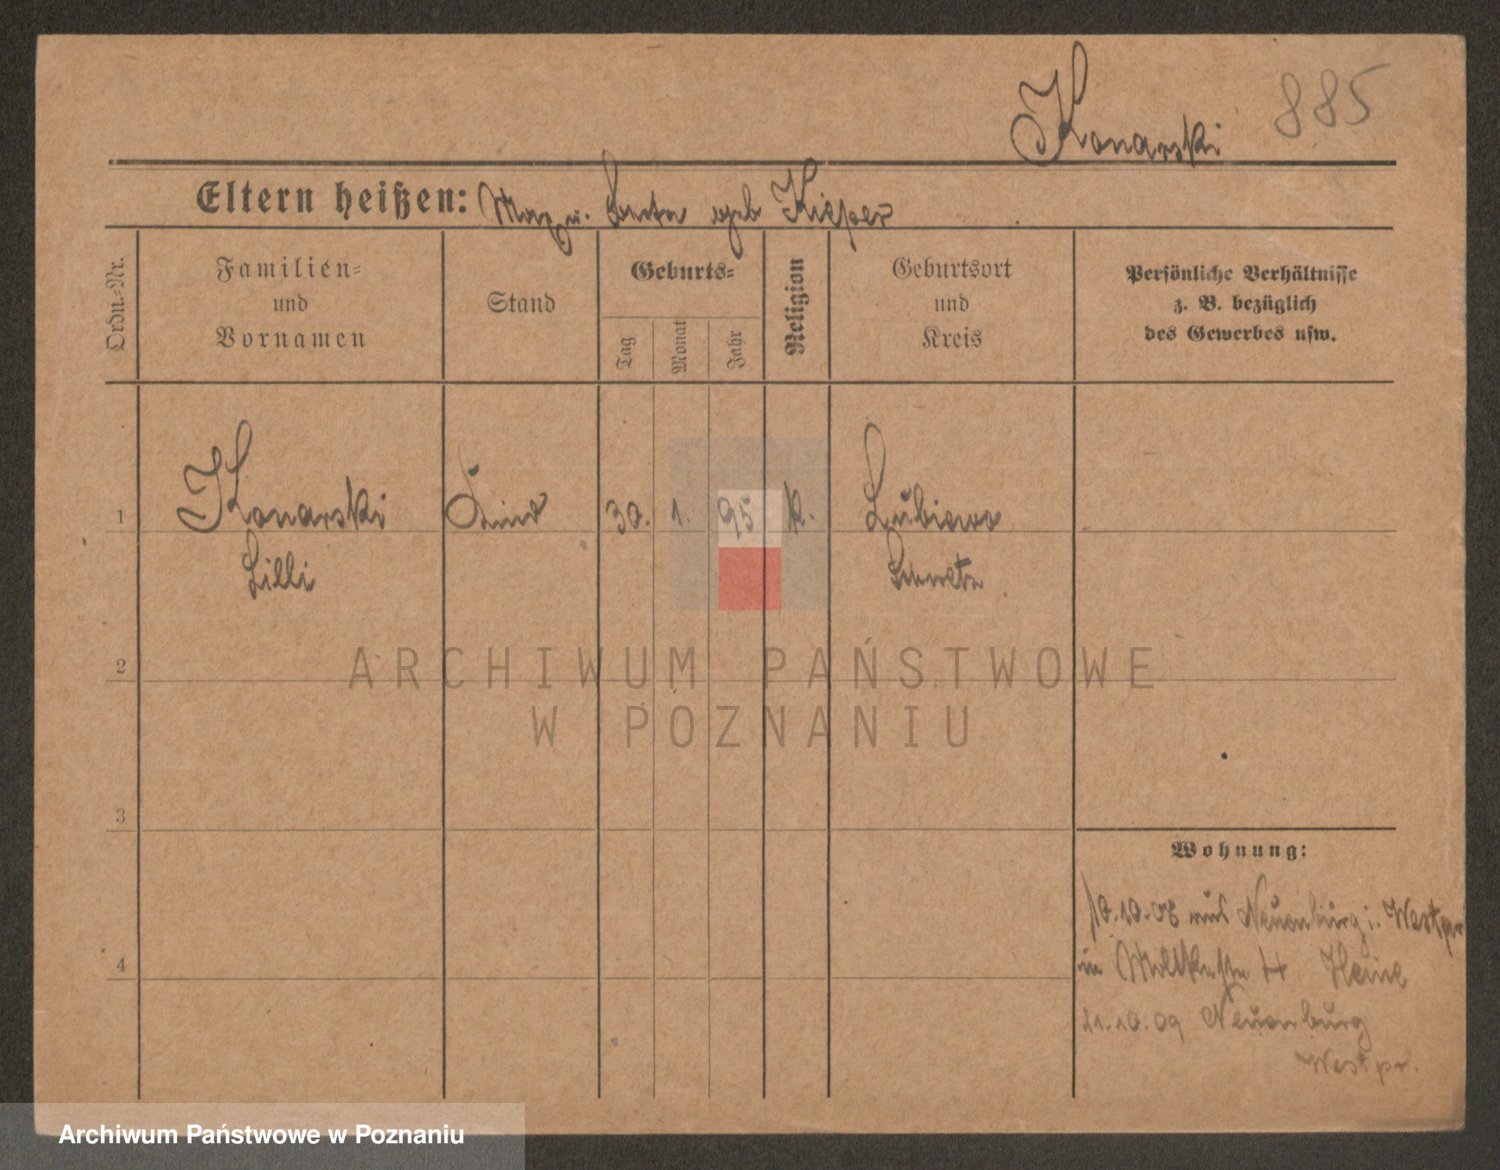 Konarski 885
Eltern heißen: Max u. Berta geb Kieper
Ordn.-Nr.
Familien-
und
Vornamen
Stand
Geburts-
Tag
Monat
Jahr
Religion
Geburtsort
und
Kreis
Persönliche Verhältnisse
z. B. bezüglich
des Gewerbes usw.
1 Konarski Kind 30. 1. 95 k. Lubiewo
Lilli Schwetz
2
ARCHIWUM PAŃSTWOWE
W POZNANIU
3
Wohnung:
10.10.08 aus Neuenburg i. Westpr
in Moltkestr 4 Heine
4
21.10.09 Neuenburg
Westpr.
Archiwum Państwowe w Poznaniu